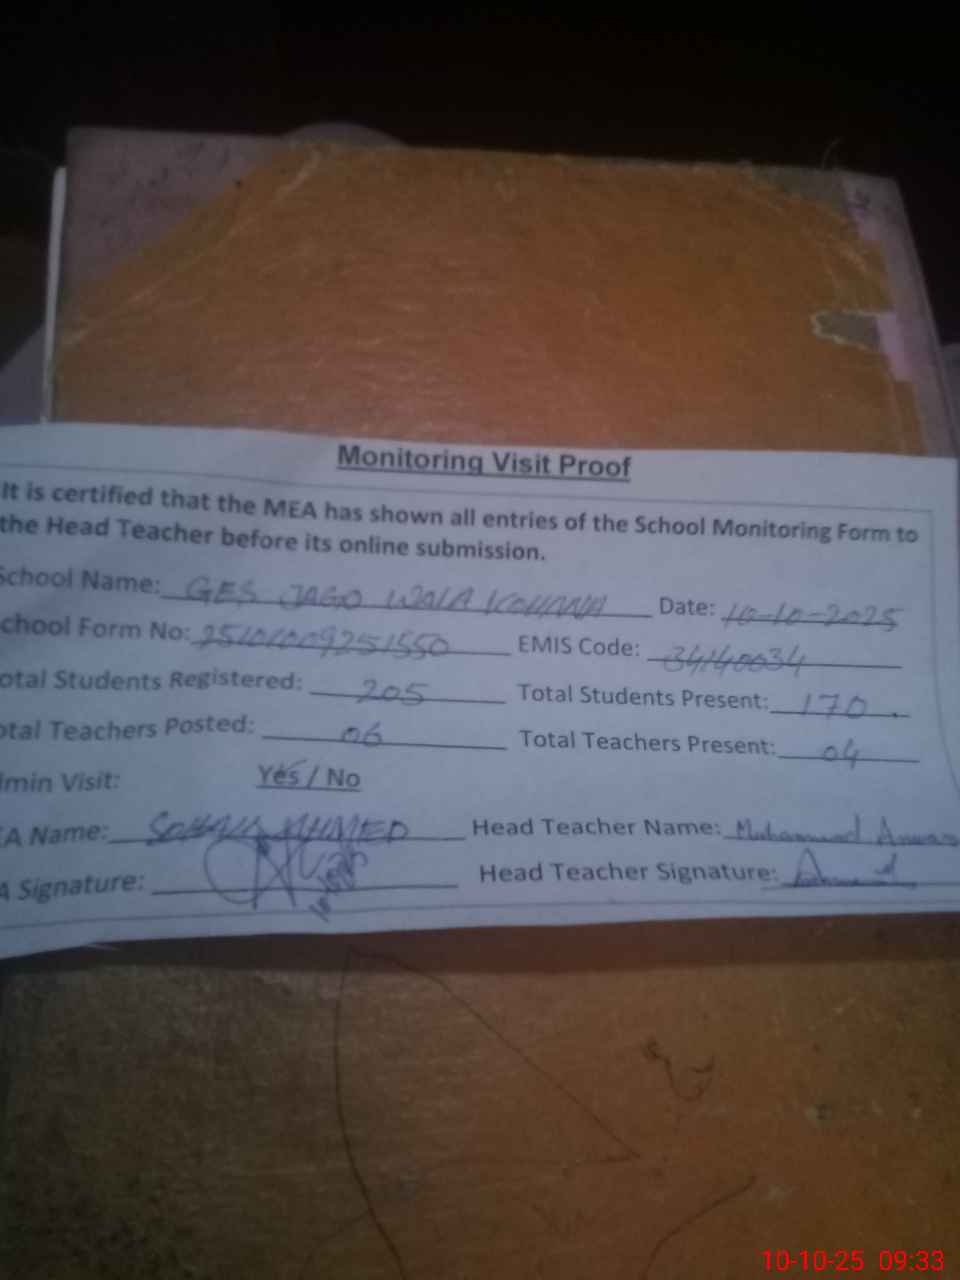 Monitoring Visit Proof
It is certified that the MEA has shown all entries of the School Monitoring Form to
the Head Teacher before its online submission.
School Name: GES JAGO WALA KOHNNA Date: 10-10-2025
chool Form No: 25101009251550 EMIS Code: 34140034
otal Students Registered: 205 Total Students Present: 170
otal Teachers Posted: 06 Total Teachers Present: 04
dmin Visit: Yes / No
EA Name: AHMED Head Teacher Name: Muhammad
A Signature: Head Teacher Signature:
10-10-25 09:33